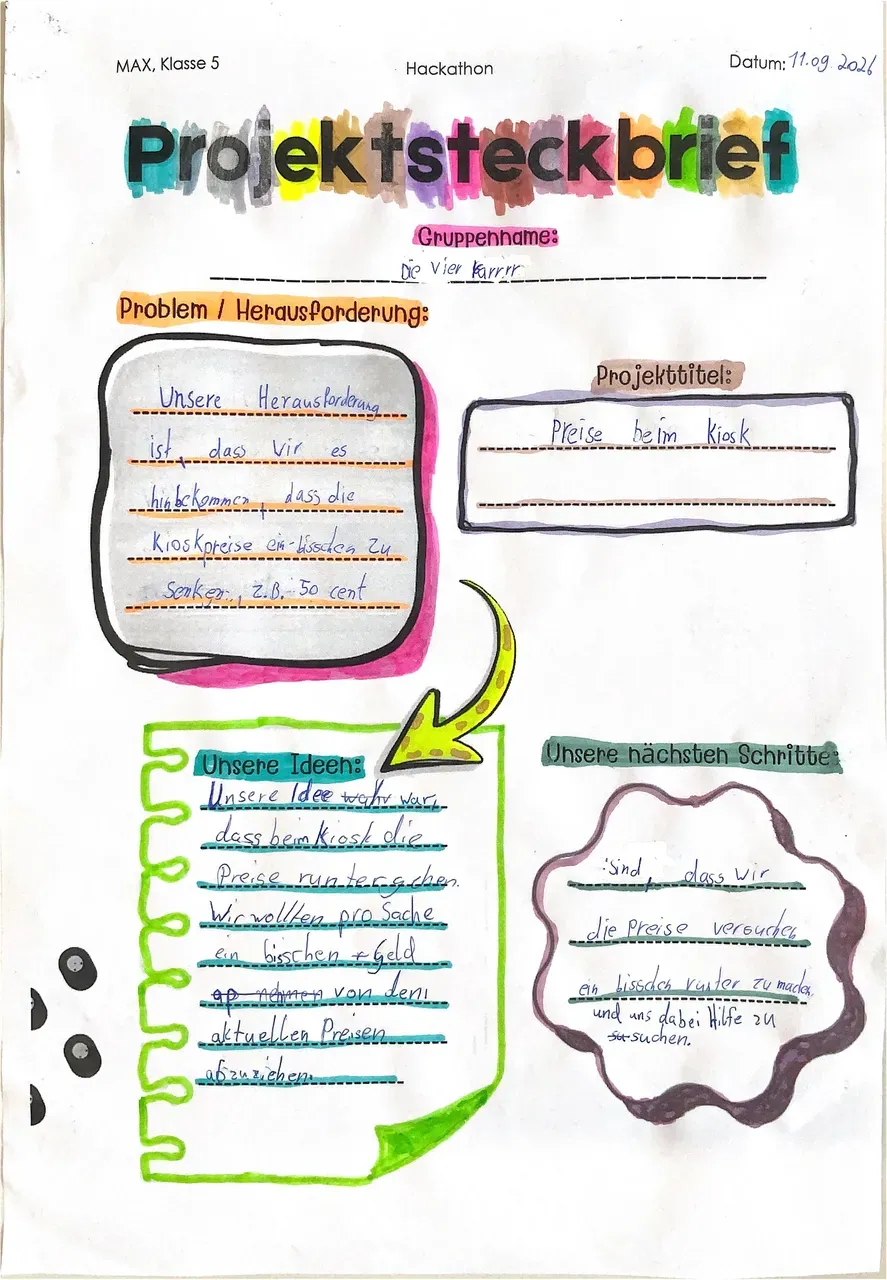 MAX, Klasse 5
Hackathon
Datum: 11.09.2026
Projektsteckbrief
Gruppenname:
Die Vier
Problem / Herausforderung:
Unsere Herausforderung
ist, dass wir es
hinbekommen, dass die
Kioskpreise ein bisschen zu
senken, z.B. 50 cent
Projekttitel:
Preise beim Kiosk
Unsere Ideen:
Unsere Idee wahr war,
dass beim Kiosk die
Preise runtergehen.
Wir wollten pro Sache
ein bisschen Geld
ap nehmen von den
aktuellen Preisen
abzuziehen.
Unsere nächsten Schritte:
Sind, dass wir
die Preise versuchen
ein bisschen runter zu machen,
und uns dabei Hilfe zu
su suchen.